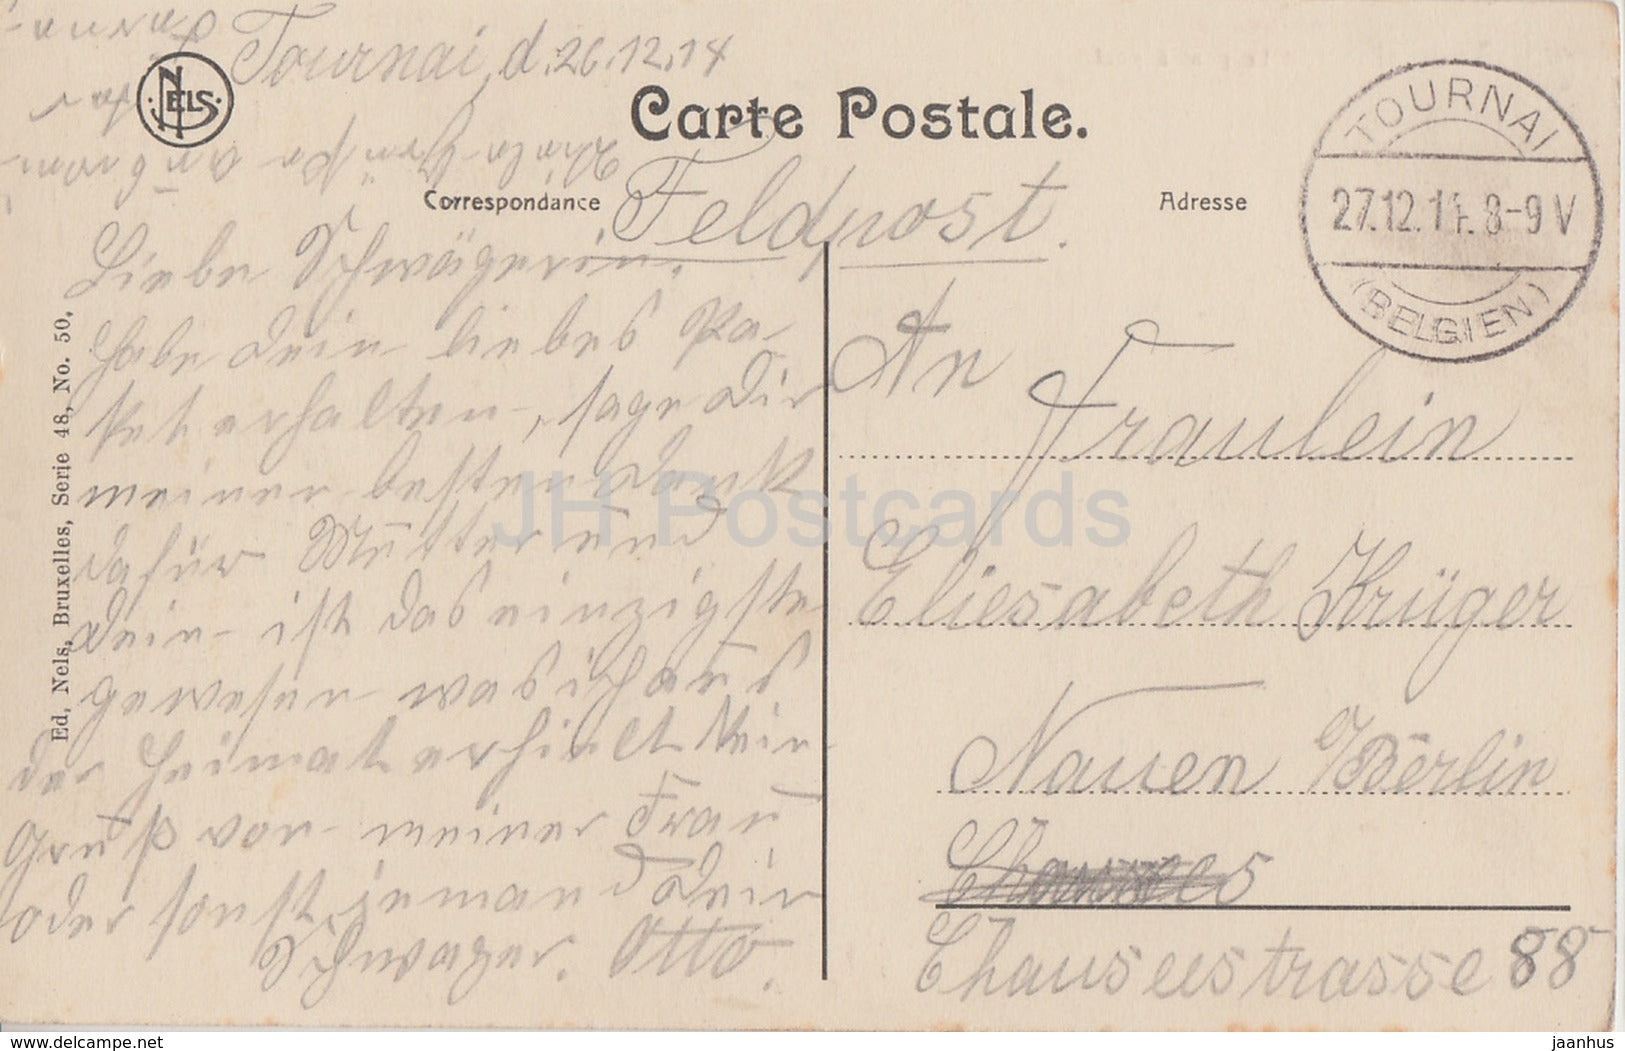 Tournai, d. 26.12.14
NELS
Carte Postale.
Correspondance
Feldpost.
Adresse
TOURNAI
27.12.14. 8-9 V
(BELGIEN)
Liebe Schwägerin.
habe dein liebes Pa-
ket erhalten, sage dir
meinen besten Dank
dafür Mutter und
dein ist das einzigste
gewesen was ich aus
der Heimat erhielt kein
Gruß von meiner Frau
oder sonst jemand dein
Schwager. Otto.
An
Fräulein
Eliesabeth Krüger
Nauen b/Berlin
Chausseestrasse 88
Ed, Nels, Bruxelles, Serie 48, No. 50,
JH Postcards
hippostcard.com
jaanhus